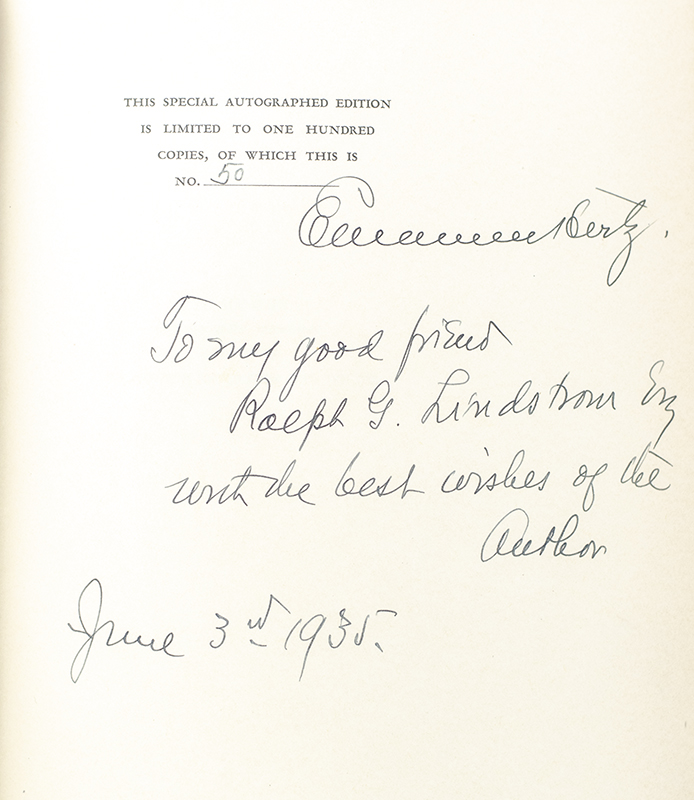 THIS SPECIAL AUTOGRAPHED EDITION
IS LIMITED TO ONE HUNDRED
COPIES, OF WHICH THIS IS
NO. 50
Emanuel Hertz.
To my good friend
Ralph G. Lindstrom Esq
with the best wishes of the
Author
June 3rd 1935.